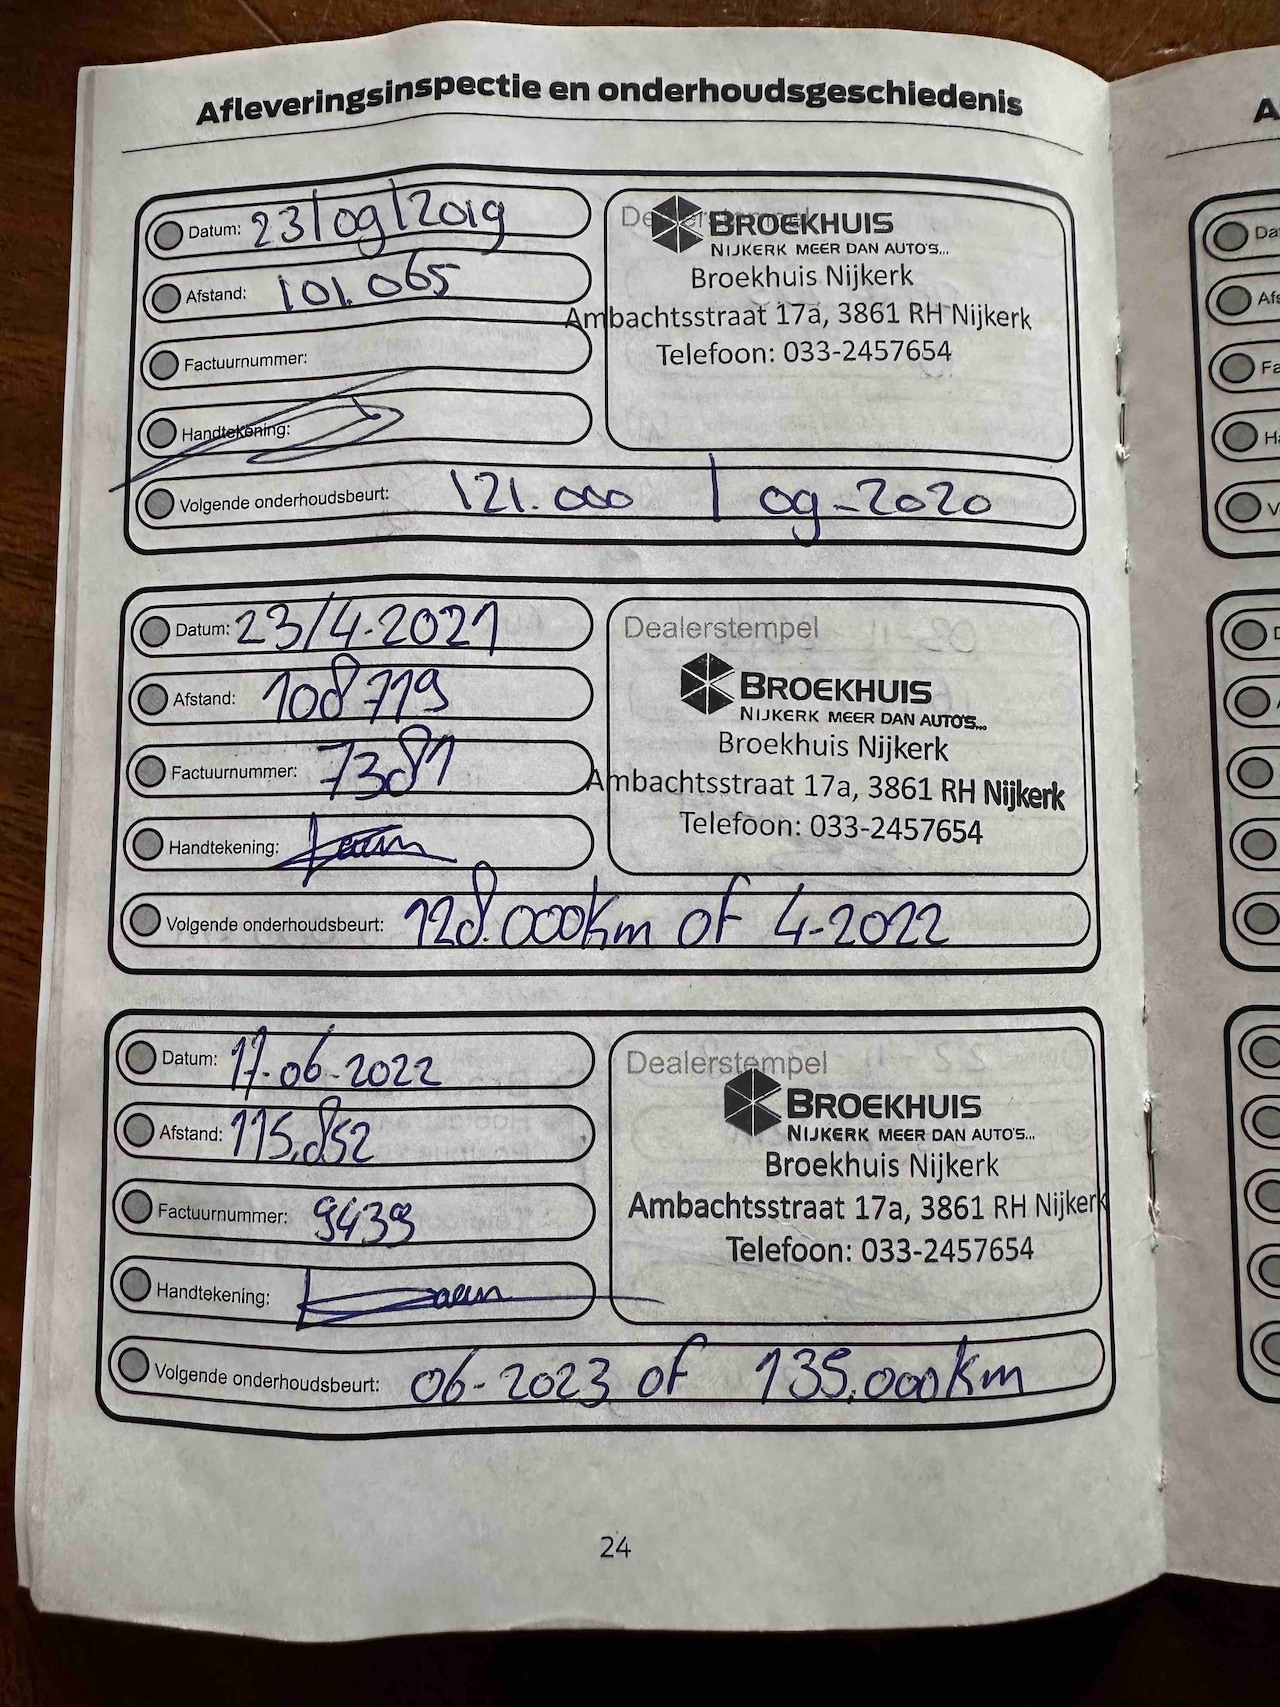 Afleveringsinspectie en onderhoudsgeschiedenis
Datum: 23/09/2019
Afstand: 101.065
Factuurnummer:
Handtekening:
Dealerstempel
BROEKHUIS
NIJKERK MEER DAN AUTO'S...
Broekhuis Nijkerk
Ambachtsstraat 17a, 3861 RH Nijkerk
Telefoon: 033-2457654
Volgende onderhoudsbeurt: 121.000 / 09-2020
Datum: 23/4-2021
Afstand: 108719
Factuurnummer: 7381
Handtekening:
Dealerstempel
BROEKHUIS
NIJKERK MEER DAN AUTO'S...
Broekhuis Nijkerk
Ambachtsstraat 17a, 3861 RH Nijkerk
Telefoon: 033-2457654
Volgende onderhoudsbeurt: 128.000km of 4-2022
Datum: 17-06-2022
Afstand: 115.852
Factuurnummer: 9439
Handtekening:
Dealerstempel
BROEKHUIS
NIJKERK MEER DAN AUTO'S...
Broekhuis Nijkerk
Ambachtsstraat 17a, 3861 RH Nijkerk
Telefoon: 033-2457654
Volgende onderhoudsbeurt: 06-2023 of 135.000km
24